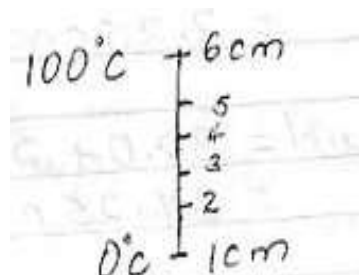 100°C 6cm
5
4
3
2
0°C 1cm